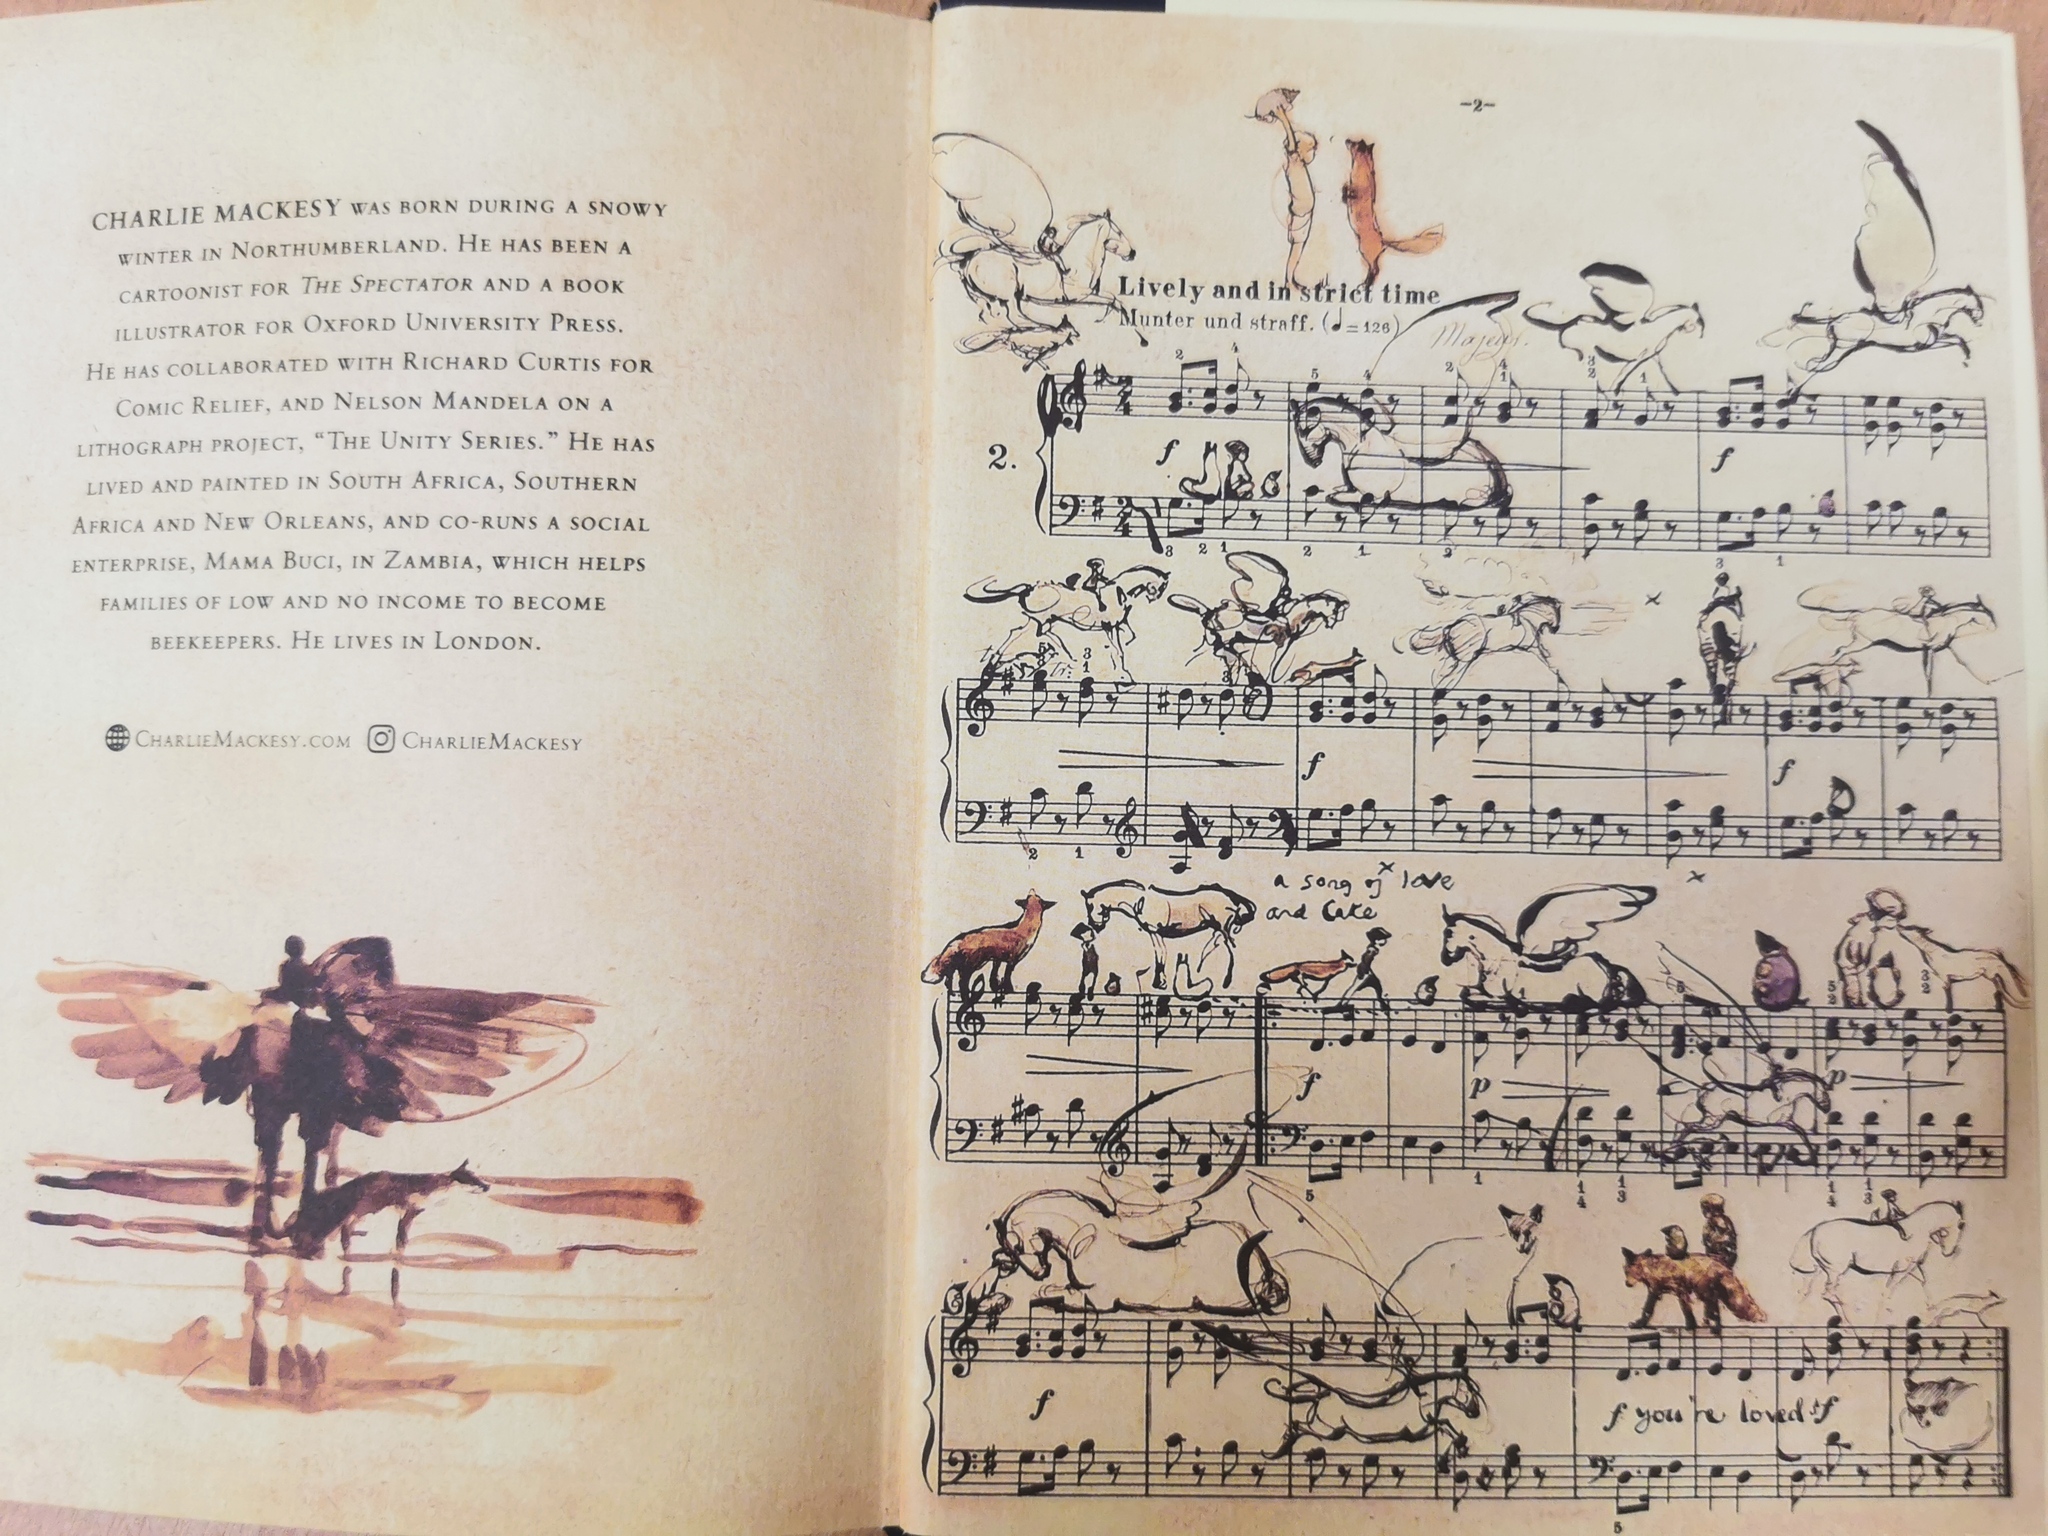 CHARLIE MACKESY WAS BORN DURING A SNOWY
WINTER IN NORTHUMBERLAND. HE HAS BEEN A
CARTOONIST FOR THE SPECTATOR AND A BOOK
ILLUSTRATOR FOR OXFORD UNIVERSITY PRESS.
HE HAS COLLABORATED WITH RICHARD CURTIS FOR
COMIC RELIEF, AND NELSON MANDELA ON A
LITHOGRAPH PROJECT, “THE UNITY SERIES.” HE HAS
LIVED AND PAINTED IN SOUTH AFRICA, SOUTHERN
AFRICA AND NEW ORLEANS, AND CO-RUNS A SOCIAL
ENTERPRISE, MAMA BUCI, IN ZAMBIA, WHICH HELPS
FAMILIES OF LOW AND NO INCOME TO BECOME
BEEKEEPERS. HE LIVES IN LONDON.
CHARLIEMACKESY.COM CHARLIEMACKESY
-2-
Lively and in strict time
Munter und straff. (♩=126)
2.
a song of love
and cake
you're loved